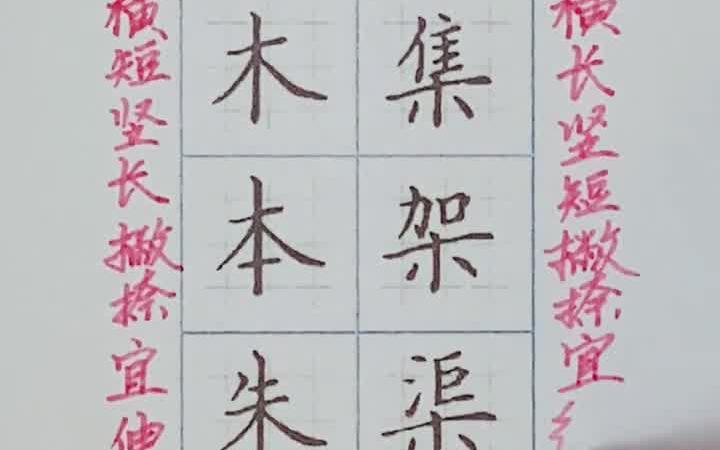 横短竖长撇捺宜伸
木集
本架
朱渠
横长竖短撇捺宜